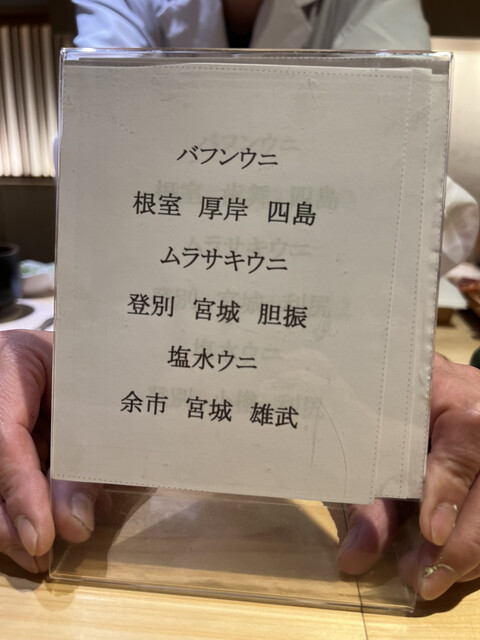 バフンウニ
根室 厚岸 四島
ムラサキウニ
登別 宮城 胆振
塩水ウニ
余市 宮城 雄武